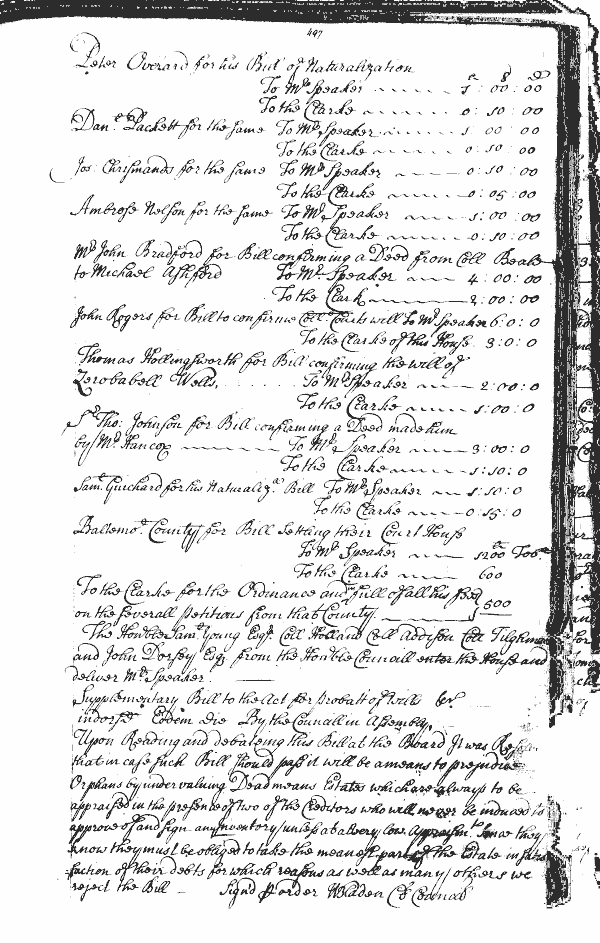 497
Peter Overard for his Bill of Naturalization
£ S D
To Mr Speaker 1: 00: 00
To the Clarke 0: 10: 00
Danl. Packett for the same To Mr Speaker 1 00: 00
To the Clarke 0: 10: 00
Jos: Chrismands for the same To Mr Speaker 0: 10: 00
To the Clarke 0: 05: 00
Ambrose Nelson for the same To Mr Speaker 1: 00: 00
To the Clarke 0: 10: 00
Mr John Bradford for Bill confirming a Deed from Coll Beale
to Michael Ashford To Mr Speaker 4: 00: 00
To the Clark 2: 00: 00
John Rogers for Bill to confirme Coll: Courts will To Mr Speaker 6: 0: 0
To the Clarke of this House 3: 0: 0
Thomas Hollingsworth for Bill confirming the will of
Zerobabell Wells, To Mr Speaker 2: 00: 0
To the Clarke 1: 00: 0
Sr Tho: Johnson for Bill confirming a Deed made him
by Mr Hancox To Mr Speaker 3: 00: 0
To the Clarke 1: 10: 0
Saml. Guichard for his Naturaliz.a Bill To Mr Speaker 1: 10: 0
To the Clarke 0: 15: 0
Baltemo.e County for Bill Settling their Court House
To Mr Speaker 1200 Tob.o
To the Clarke 600
To the Clarke for the Ordinance and full of all his fees
on the severall petitions from that County. 500
The Honble Saml. Young Esqr. Coll Holland Coll Addison Coll Tilghman
and John Dorsey Esqr from the Honble Councill enter the House and
deliver Mr Speaker
Supplementary Bill to the Act for probatt of Wills
indorsed Eodem die By the Councill in Assembly,
Upon Reading and debateing this Bill at the Board It was
that in case such Bill should pass it will be a means to prejudice
Orphans by undervaluing Dead mens Estates which are always to be
appraised in the presence of two of the Creditors who will never be induced to
approve of and sign any Inventory unless at a Very low Appraism.t Since they
know they must be obliged to take the meanest part of the Estate in satis
faction of their debts for which reasons as well as many others we
reject the Bill Signd p order WBladen Cl Councill